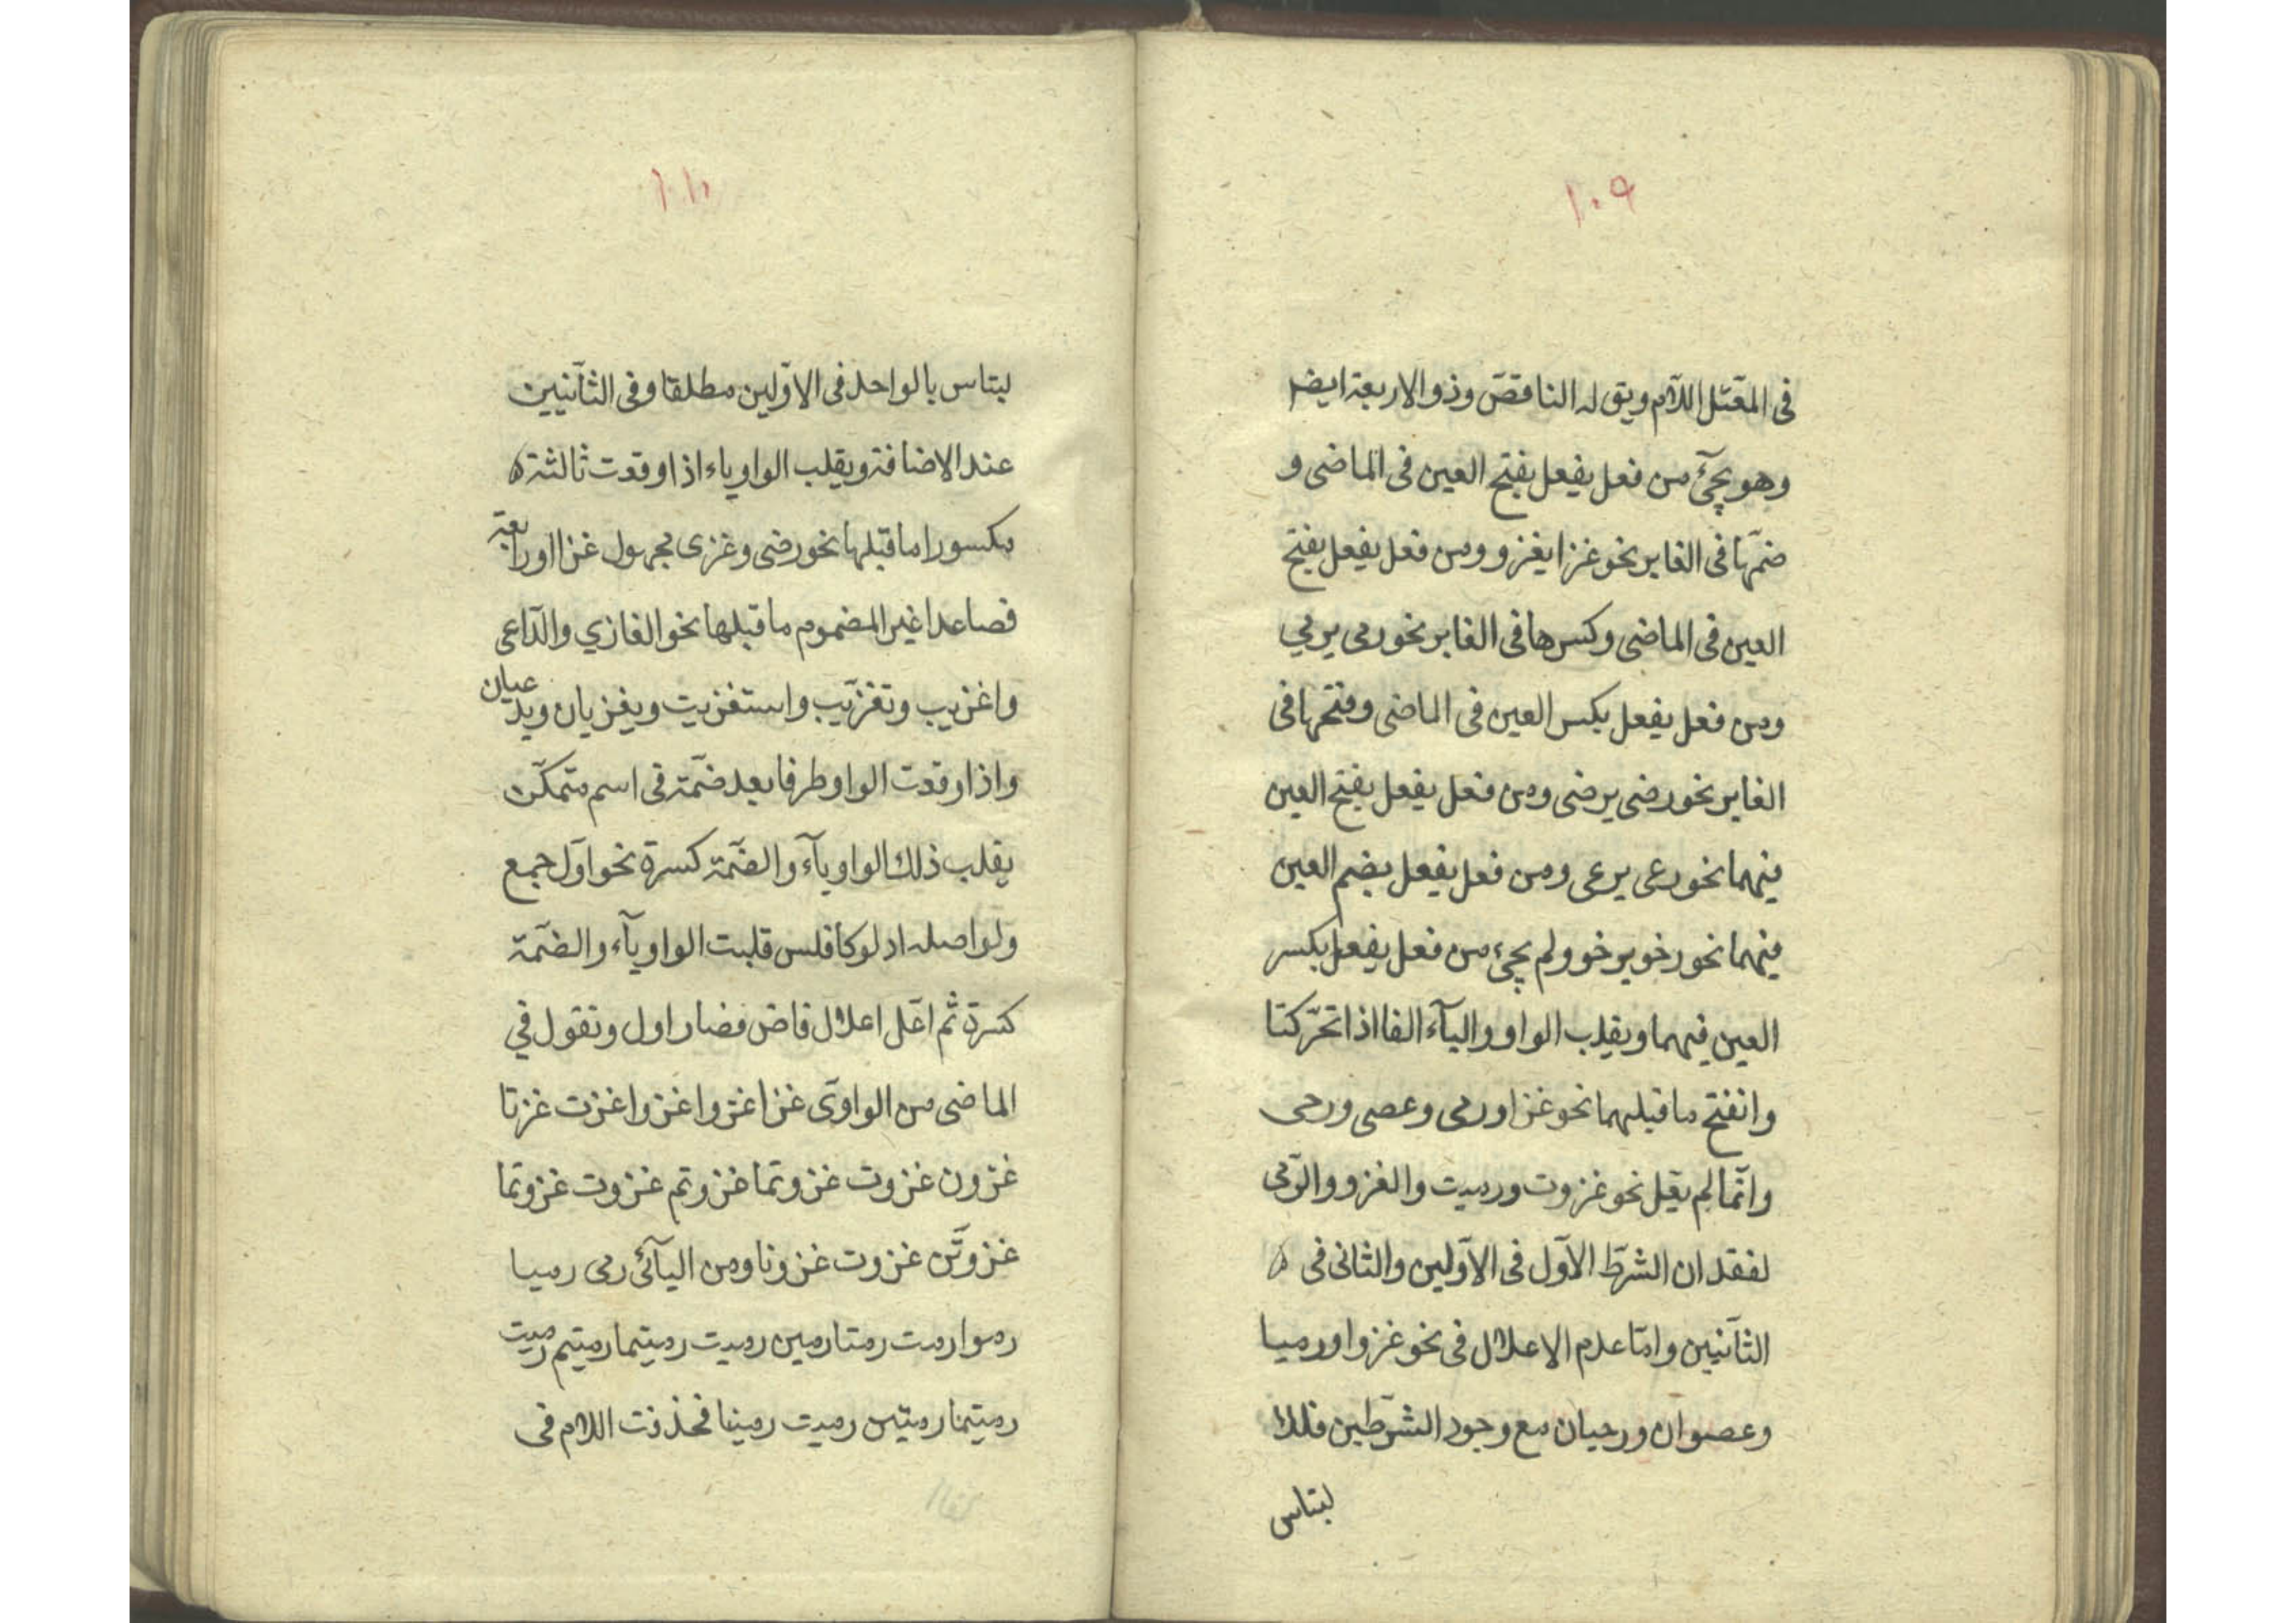 ١٠٩
فى المعتل اللام ويق له الناقص وذو الاربعة ايضا
وهو يجئ من فعل يفعل بفتح العين فى الماضى و
ضمها فى الغابر نحو غزا يغزو ومن فعل يفعل بفتح
العين فى الماضى وكسرها فى الغابر نحو رمى يرمي
ومن فعل يفعل بكسر العين فى الماضى وفتحها فى
الغابر نحو رضى يرضى ومن فعل يفعل بفتح العين
فيهما نحو رعى يرعى ومن فعل يفعل بضم العين
فيهما نحو رخو يرخو ولم يجئ من فعل يفعل بكسر
العين فيهما ويقلب الواو والياء الفا اذا تحرّكتا
وانفتح ما قبلهما نحو غزا ورمى وعصى ورحى
وانّما لم يقل نحو غزوت ورميت والغزو والرّمى
لفقدان الشرط الاوّل فى الاوّلين والثانى فى
الثآنيين وامّا عدم الاعلال فى نحو غزوا ورميا
وعصوان ورحيان مع وجود الشرطين فللا
لبتاس
١١٠
لبتاس بالواحد فى الاوّلين مطلقا وفى الثآنيين
عند الاضافة ويقلب الواو ياء اذا وقعت ثالثة
مكسورا ما قبلها نحو رضى وغزى مجهول غزا او رابعة
فصاعدا غير المضموم ما قبلها نحو الغازي والدّاعى
واغزيت وتغزّيت واستغزيت ويغزيان ويدعيان
واذا وقعت الواو طرفا بعد ضمّة فى اسم متمكّن
يقلب ذلك الواو يآء والضمّة كسرة نحو اول جمع
ولو اصله ادلو كافلس قلبت الواو يآء والضمّة
كسرة ثم اعلّ اعلال قاض فصار اول وتقول في
الماضى من الواوى غزا غزوا غزوا غزت غزتا
غزون غزوت غزوتما غزوتم غزوت غزوتما
غزوتّن غزوت غزونا ومن اليآئى رمى رميا
رموا رمت رمتا رمين رميت رميتما رميتم رميت
رميتما رميتن رميت رمينا فحذفت اللام فى